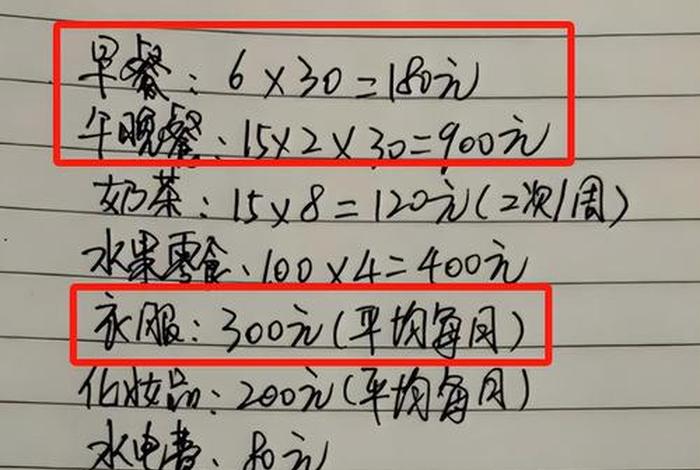 早餐：6×30=180元
午晚餐：15×2×30=900元
奶茶：15×8=120元(2次/周)
水果零食、100×4=400元
衣服：300元(平均每月)
化妆品：200元(平均每月)
水电费：80元